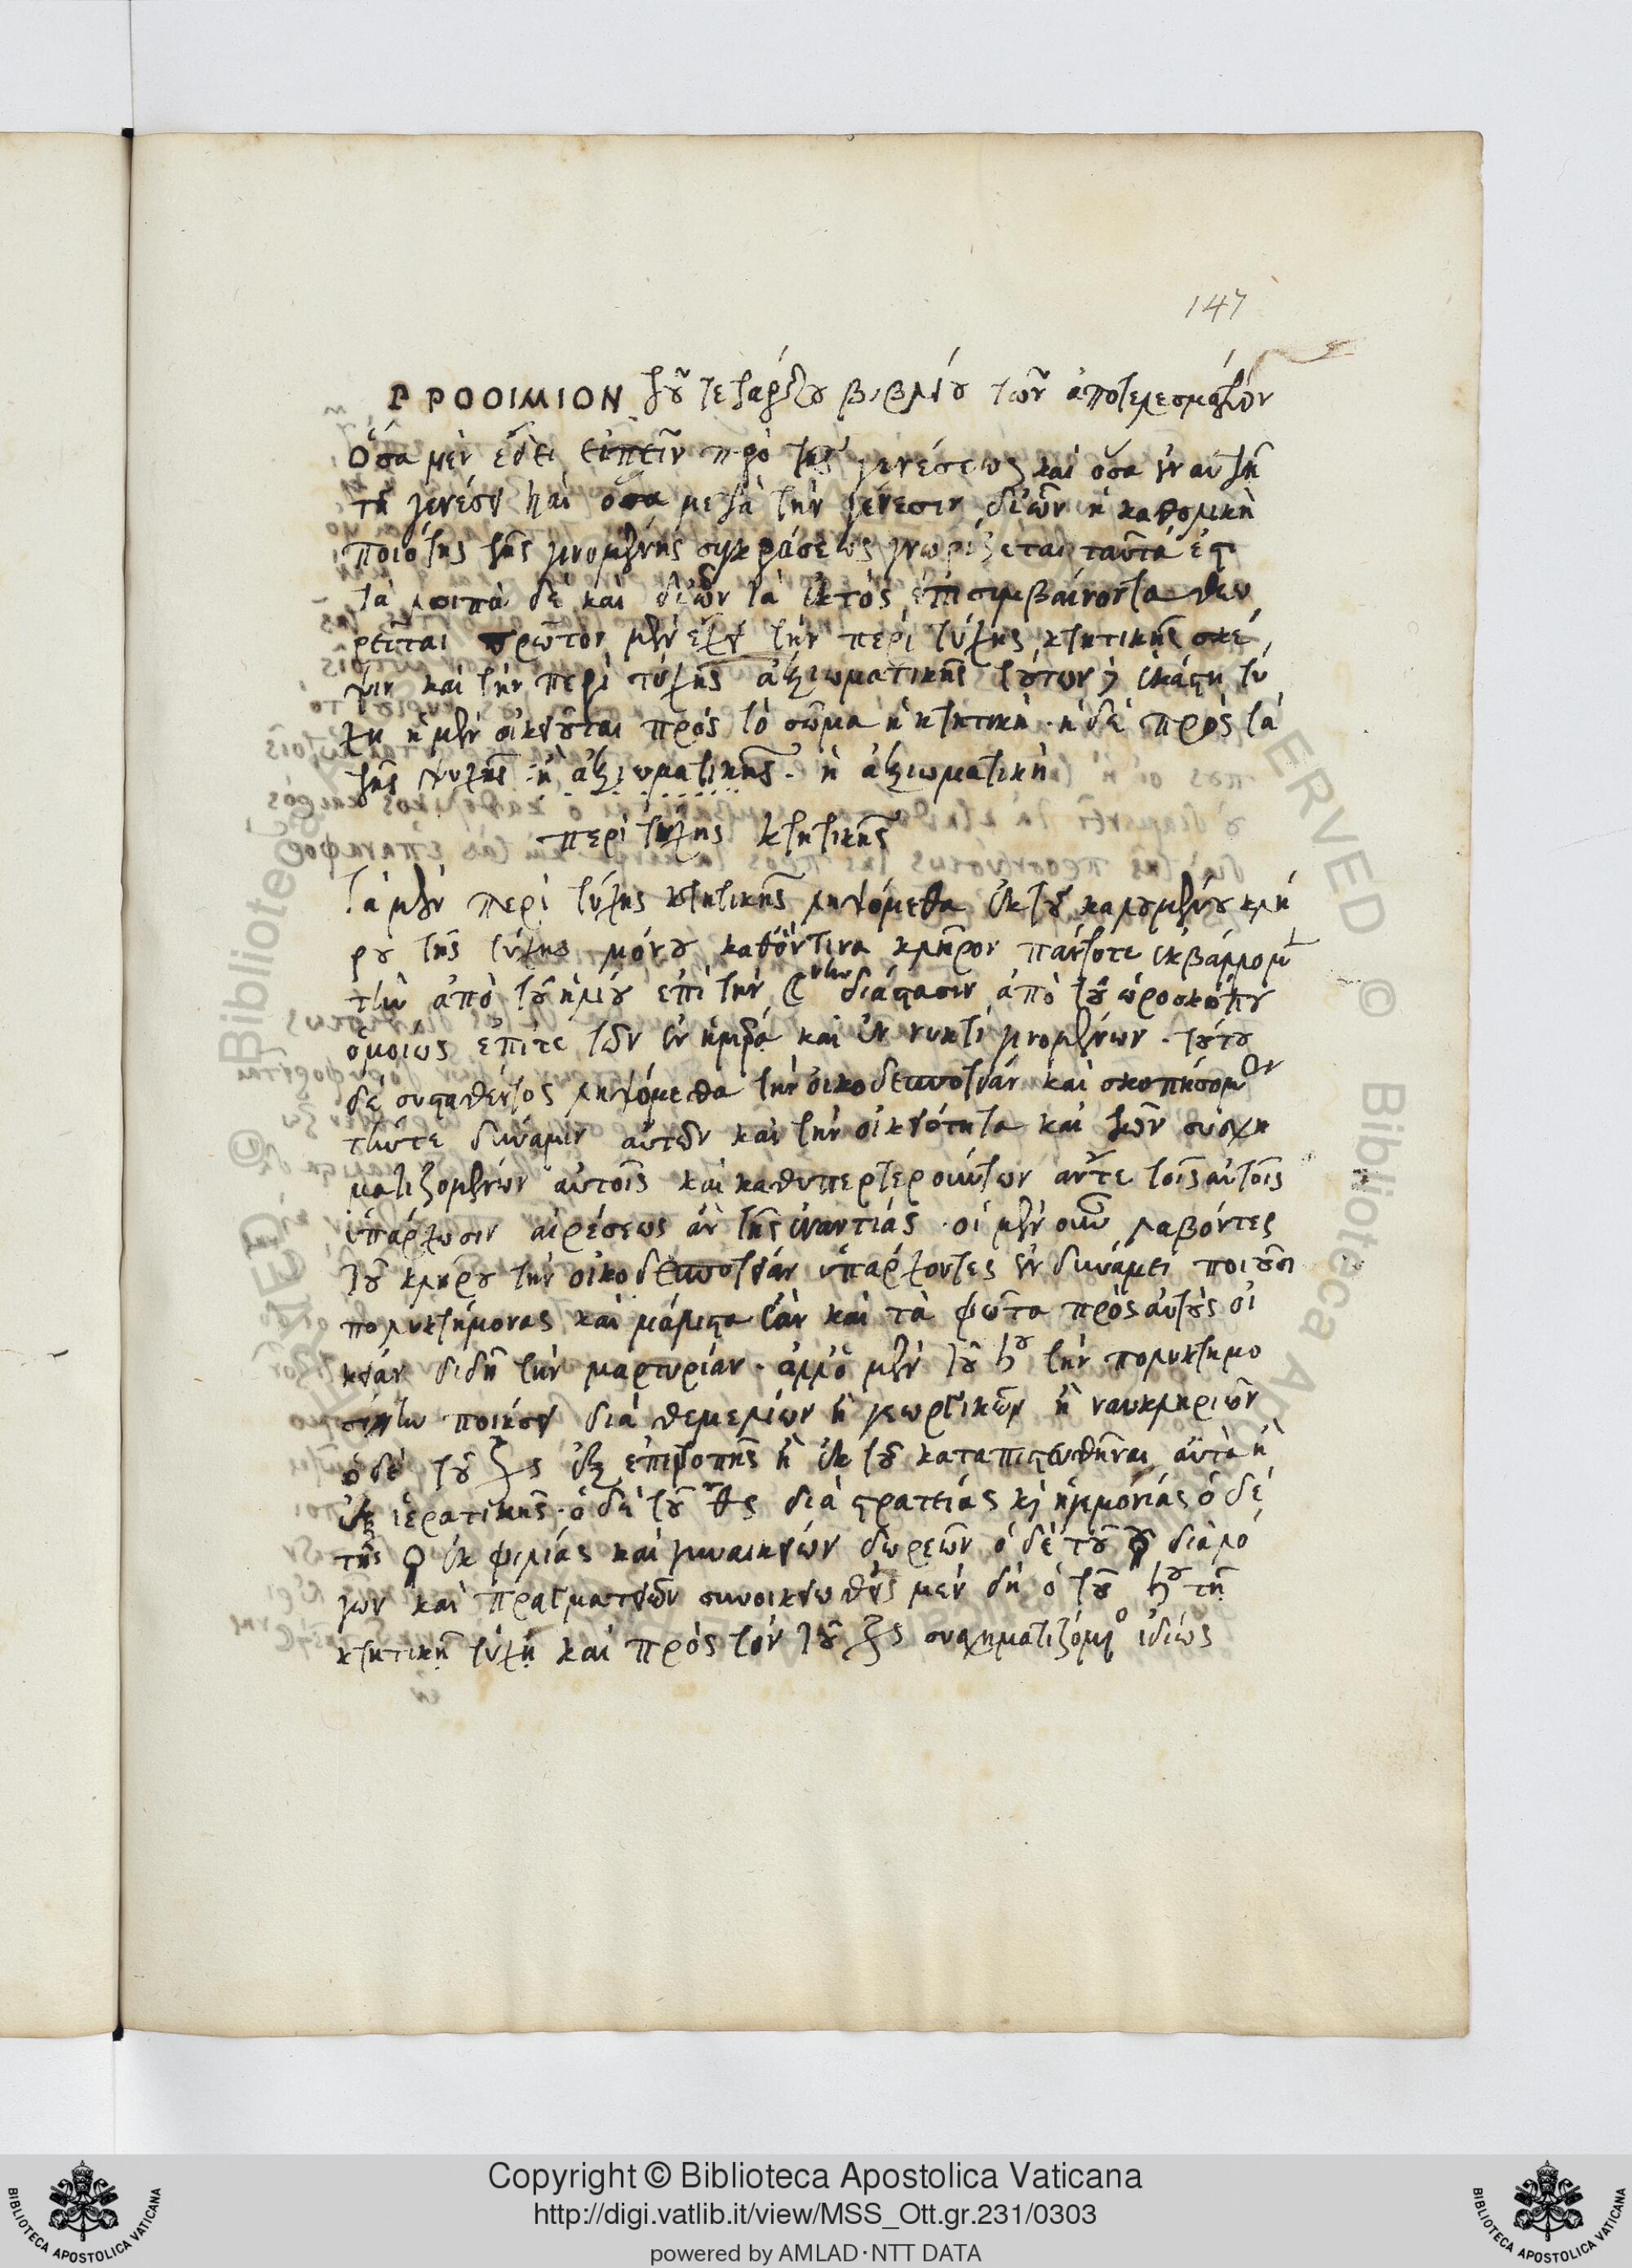 147
ΠΡΟΟΙΜΙΟΝ τοῦ τετάρτου βιβλίου τῶν ἀποτελεσμάτων
Ὅσα μὲν ἔδει εἰπεῖν πρὸ τῆς γενέσεως καὶ ὅσα ἐν αὐτῆ
τῆ γενέσει καὶ ὅσα μετὰ τὴν γένεσιν δι' ὧν ἡ καθολικὴ
ποιότης τῆς γινομένης συγκράσεως γνωρίζεται ταῦτά ἐστι
τὰ λοιπὰ δὲ καὶ δι' ὧν τὰ ἐκτὸς ἐπισυμβαίνοντα θεω
ρεῖται πρῶτον μὲν ἔχει τὴν περὶ τύχης κτητικῆς σκέ
ψιν καὶ τὴν περὶ τύχης ἀξιωματικῆς τούτων ἑκάστη τύ
χη ἡ μὲν οἰκειοῦται πρὸς τὸ σῶμα ἡ κτητικὴ. ἡ δὲ πρὸς τὰ
τῆς ψυχῆς ἡ ἀξιωματικῆς. ἡ ἀξιωματικὴ
περὶ τύχης κτητικῆς
Τὰ μὲν περὶ τύχης κτητικῆς ληψόμεθα ἐκ τοῦ καλουμένου κλή
ρου τῆς τύχης μόνου καθ' ὅντινα κλῆρον πάντοτε ἐκβάλλομεν
τὴν ἀπὸ τοῦ ἡλίου ἐπὶ τὴν ☾ην διάστασιν ἀπὸ τοῦ ὡροσκόπου
ὁμοίως ἐπί τε τῶν ἐν ἡμέρα καὶ ἐν νυκτὶ γινομένων. τούτου
δὲ συσταθέντος ληψόμεθα τὴν οἰκοδεσποτείαν καὶ σκοπήσομεν
τήν τε δύναμιν αὐτῶν καὶ τὴν οἰκειότητα καὶ τῶν συσχη
ματιζομένων αὐτοῖς καὶ καθυπερτερούντων ἄν τε τοῖς αὐτοῖς
ὑπάρχωσιν αἱρέσεως ἂν τῆς ἐναντίας. οἱ μὲν οὖν λαβόντες
τοῦ κλήρου τὴν οἰκοδεσποτείαν ὑπάρχοντες ἐν δυνάμει ποιοῦσι
πολυκτήμονας καὶ μάλιστα ἐὰν καὶ τὰ φῶτα πρὸς αὐτοὺς οἰ
κείαν διδῆ τὴν μαρτυρίαν. ἀλλ' ὁ μὲν τοῦ ♄ου τὴν πολυκτημο
σύνην ποιήσει διὰ θεμελίων ἢ γεωργικῶν ἢ ναυκληριῶν
ὁ δὲ τοῦ ♃ς ἐξ ἐπιτροπῆς ἢ ἐκ τοῦ καταπιστευθῆναι αὐτὰ ἢ
ἐξ ἱερατικῆς. ὁ δὲ τοῦ ♂ς διὰ στρατείας καὶ ἡγεμονίας ὁ δὲ
τῆς ♀ ἐκ φιλίας καὶ γυναικείων δωρεῶν ὁ δὲ τοῦ ☿ διὰ λό
γων καὶ πραγματειῶν συνοικειωθεὶς μὲν δὴ ὁ τοῦ ♄ου τῆ
κτητικῆ τύχη καὶ πρὸς τὸν τοῦ ♃ς συσχηματιζόμενος ἰδίως
Copyright © Biblioteca Apostolica Vaticana
http://digi.vatlib.it/view/MSS_Ott.gr.231/0303
powered by AMLAD·NTT DATA